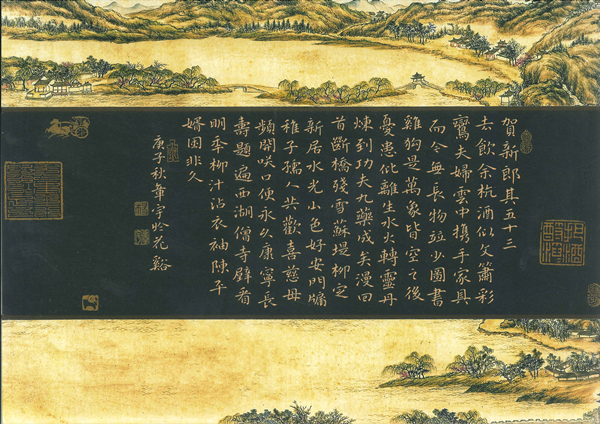 賀新郎其五十三
去飲余杭酒似文簫彩
鸞夫婦雲中携手家具
而今無長物竝少圖書
雞狗是萬象皆空之後
憂患仳離生水火轉靈丹
煉到功夫九藥成矣漫回
首斷橋殘雪蘇堤柳定
新居水光山色好安門牖
稚子孺人共歡喜慈母
頻開咲口便永久康寧長
壽題遍西湖僧寺壁看
明年柳汁沾衣袖陳平
婿困非久
庚子秋章宇吟花谿